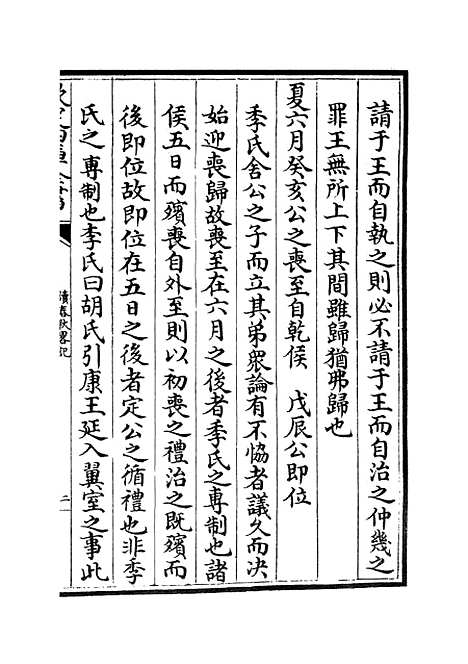 請于王而自執之則必不請于王而自治之仲幾之
罪王無所上下其間雖歸猶弗歸也
夏六月癸亥公之喪至自乾侯　戊辰公即位
季氏舍公之子而立其弟衆論有不恊者議久而决
始迎喪歸故喪至在六月之後者季氏之專制也諸
侯五日而殯喪自外至則以初喪之禮治之既殯而
後即位故即位在五日之後者定公之循禮也非季
氏之專制也李氏曰胡氏引康王延入翼室之事此
欽定四庫全書
讀春秋畧記
二